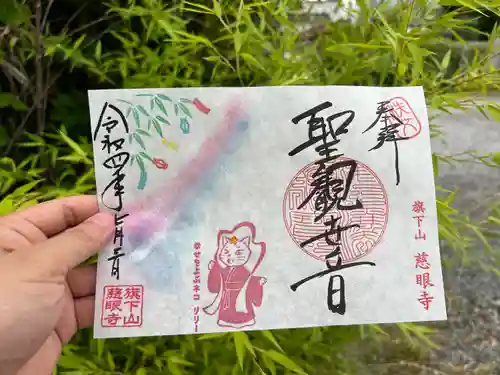 奉拝
聖観世音
旗下山 慈眼寺
令和四年七月三日
旗下山
慈眼寺